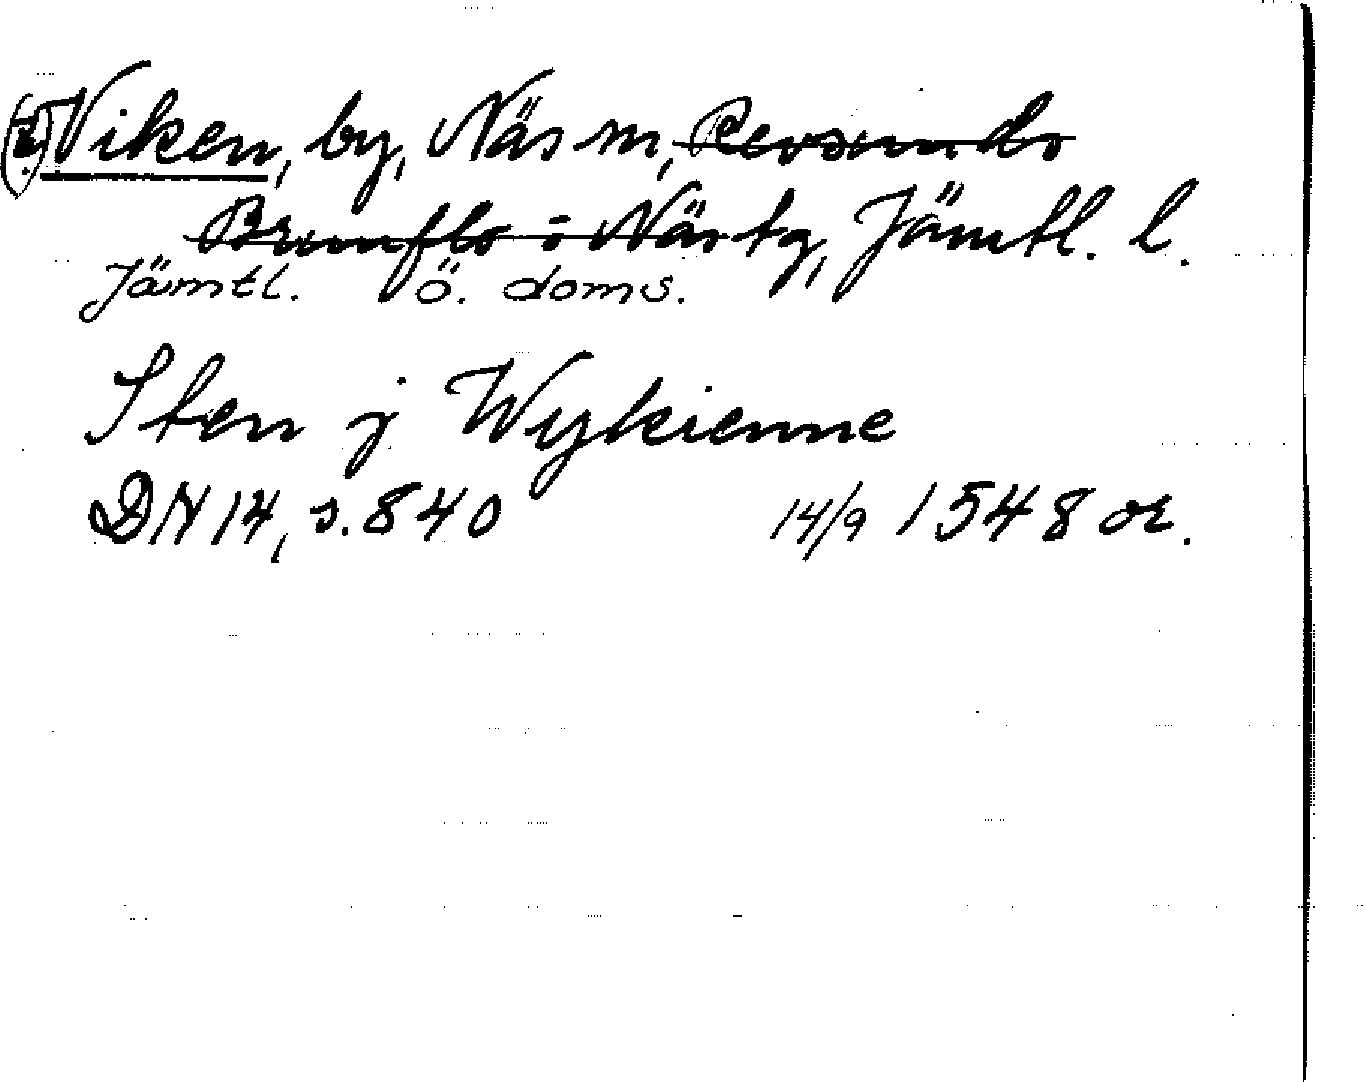 Viken, by, Näs sn, Revsunds
Brunflo o Näs tg, Jämtl. l.
Jämtl. ö. doms.
Sten j Wykienne
DN 14, s. 840 14/9 1548 or.